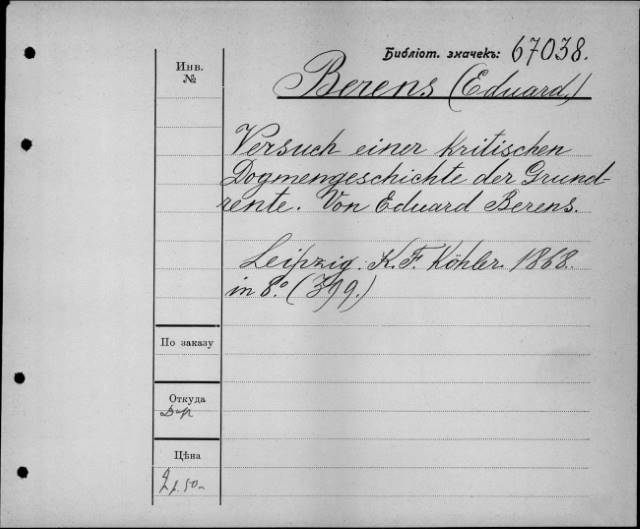 Библіот. значекъ: 67038.
Инв. №
Berens (Eduard)
Versuch einer kritischen
Dogmengeschichte der Grund-
rente. Von Eduard Berens.
Leipzig. K. F. Köhler. 1868.
in 8.º (399.)
По заказу
Откуда
Цѣна
2 р. 50